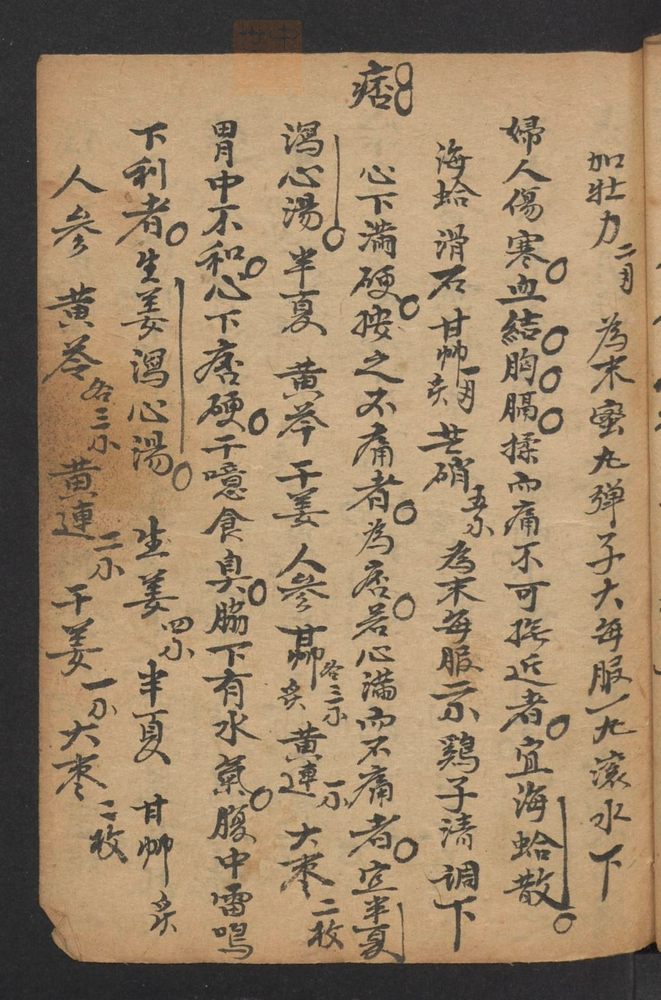 加壮力二円為末蜜丸弹子大每服一丸滚水下
婦人傷寒血結胸膈揉而痛不可撫近者宜海蛤散
海蛤滑石甘艸一円炙芒硝五小為末每服二小鷄子清調下
痞
心下滿硬按之不痛者為痞若心滿而不痛者宜半夏
瀉心湯半夏黄芩干姜人參甘艸炙各三小黄連一小大枣二枚
胃中不和心下痞硬干噫食臭脇下有水氣腹中雷鳴
下利者生姜瀉心湯生姜四小半夏甘艸炙
人參黄芩各三小黄連二小干姜一小大枣二枚